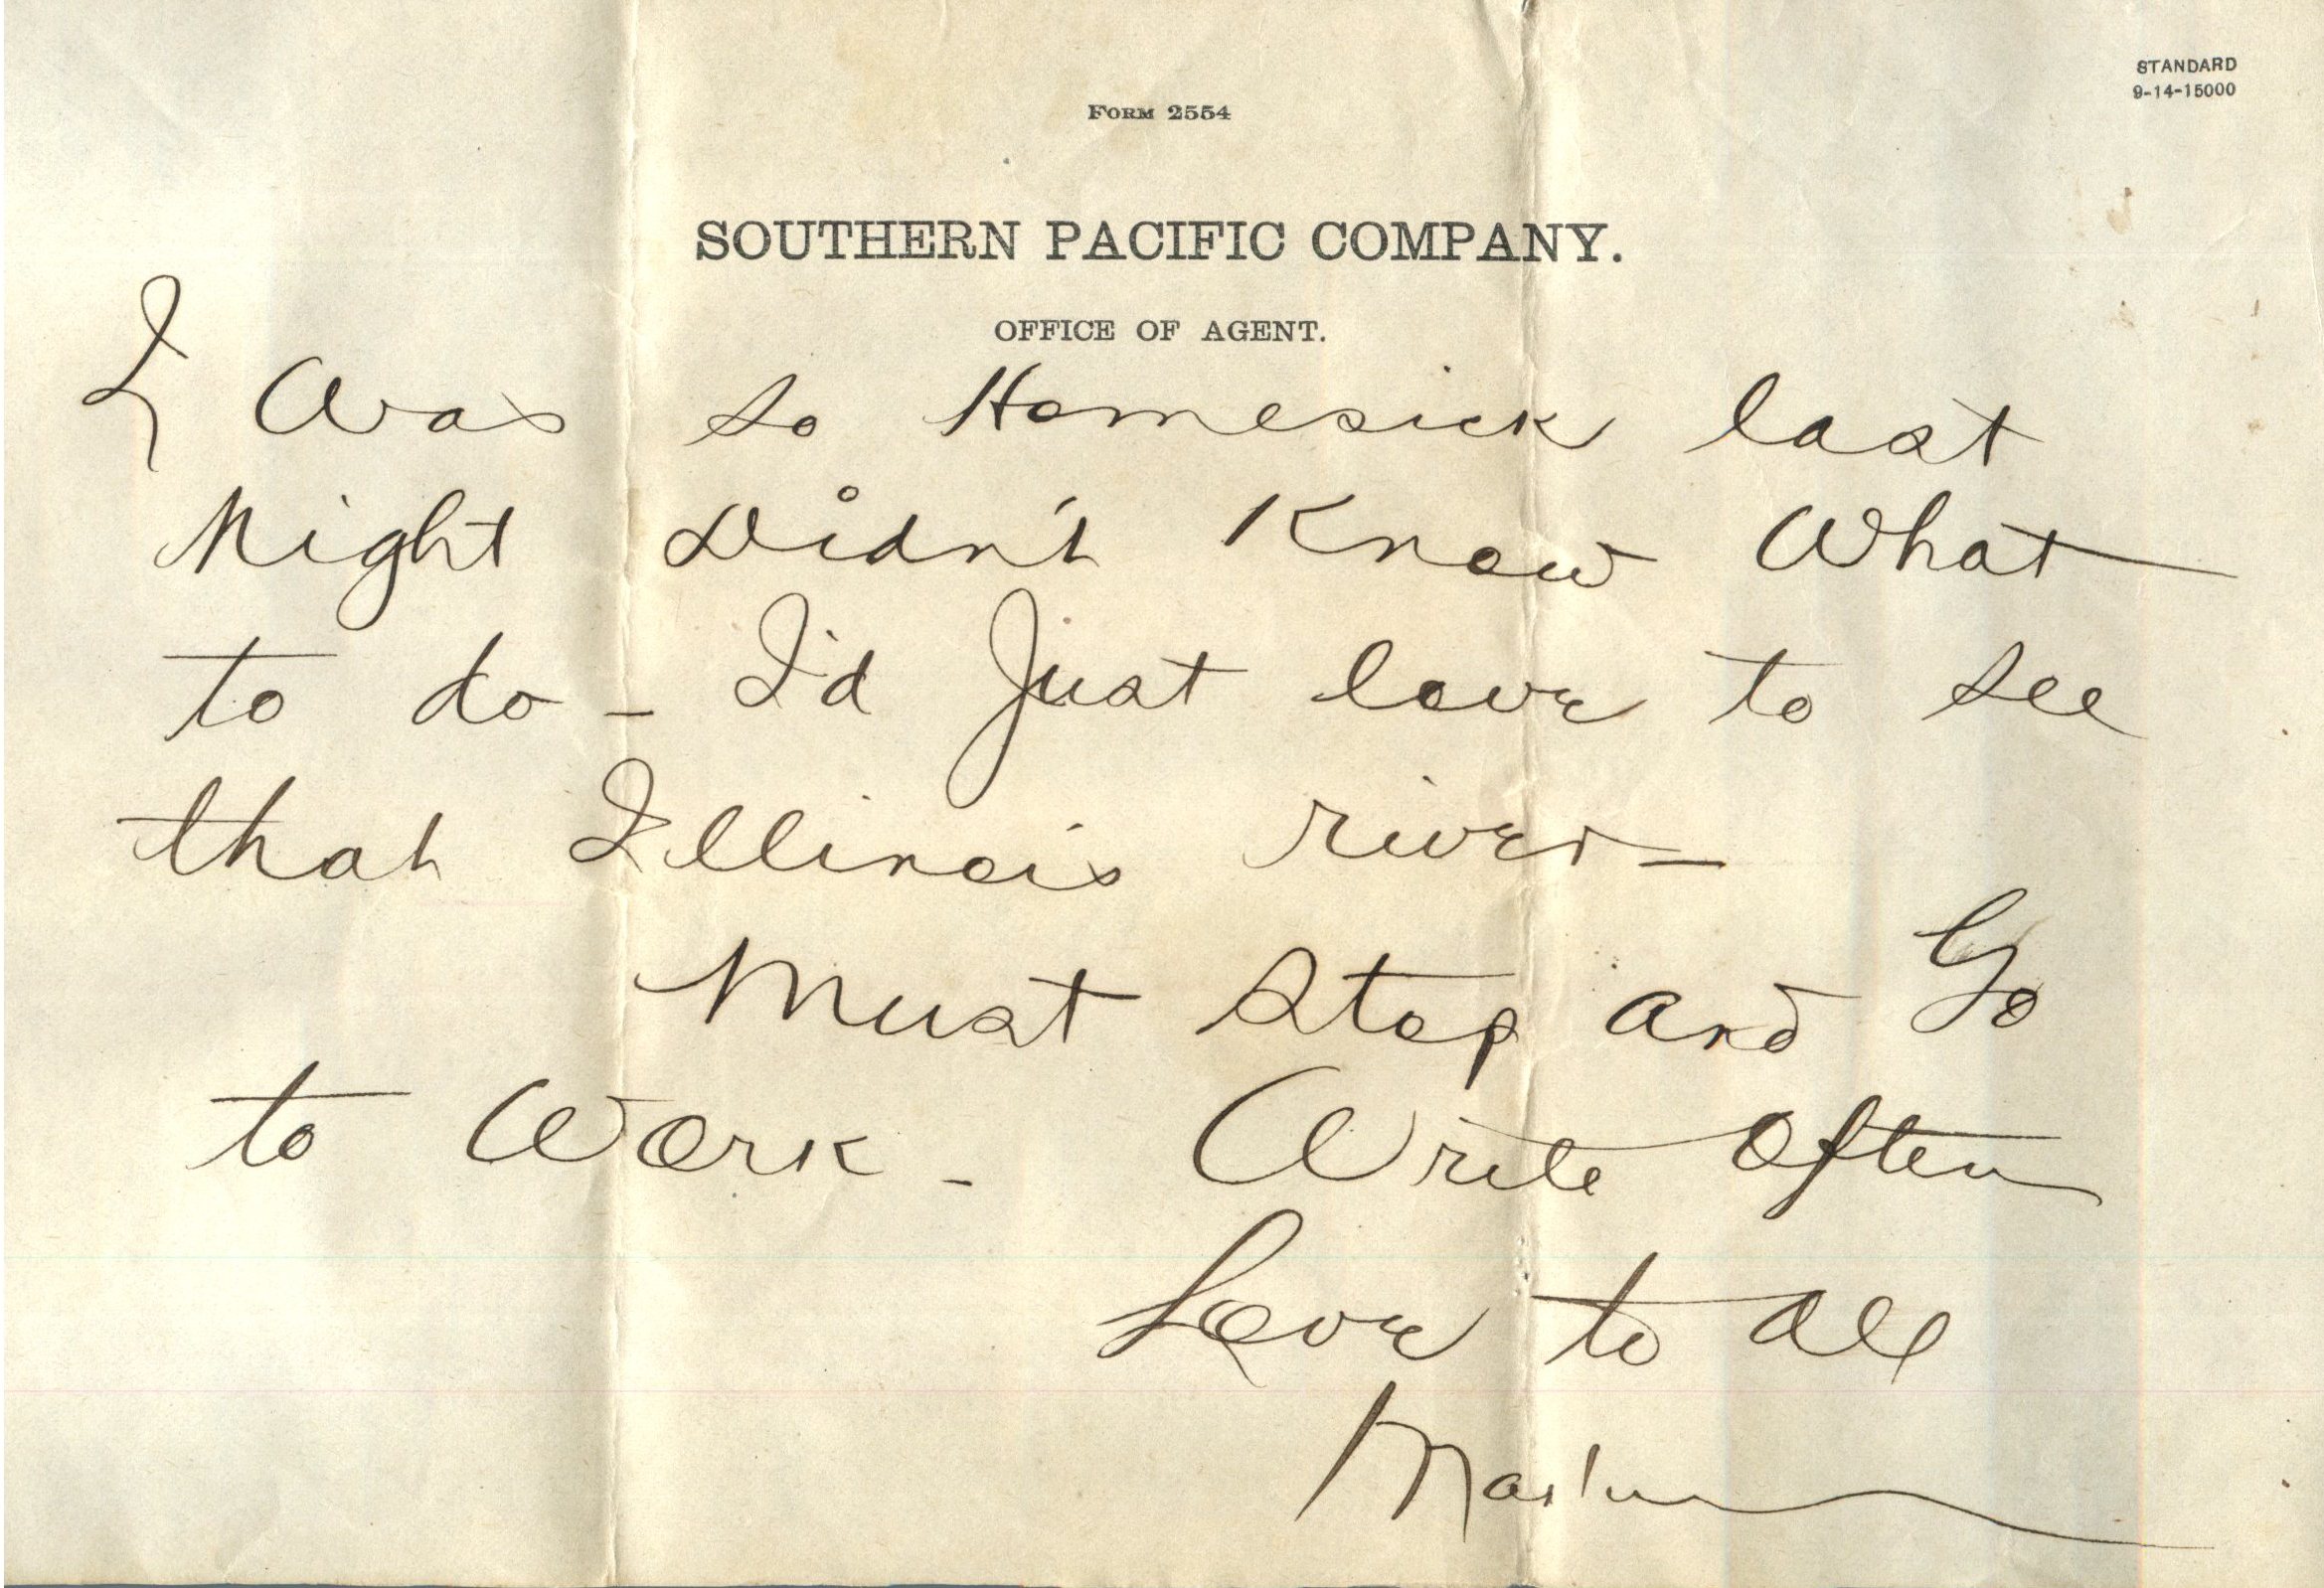 STANDARD
9-14-15000
FORM 2554
SOUTHERN PACIFIC COMPANY.
OFFICE OF AGENT.
I Was so Homesick last
Night Didn't Know What
to do - I'd Just love to see
that Illinois river -
Must Stop and Go
to Work - Write Often
Love to All